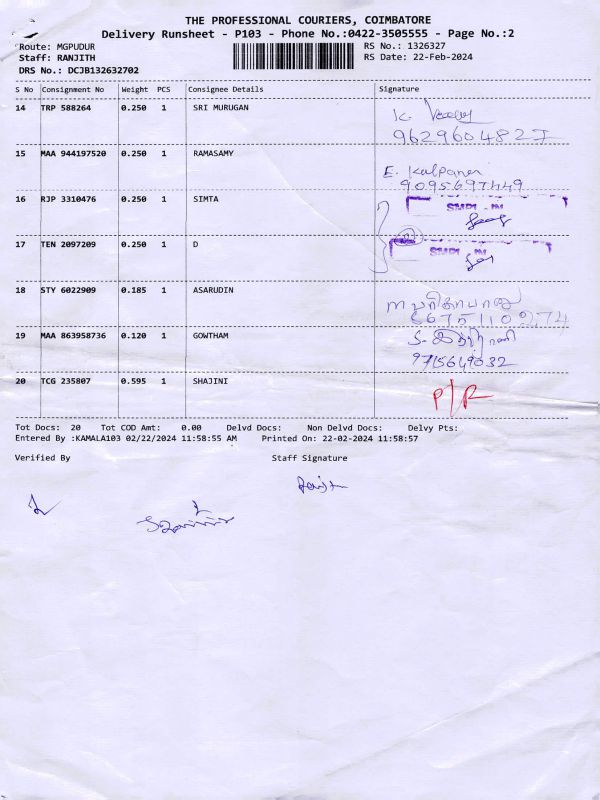 THE PROFESSIONAL COURIERS, COIMBATORE
Delivery Runsheet - P103 - Phone No.:0422-3505555 - Page No.:2
Route: MGPUDUR
RS No.: 1326327
Staff: RANJITH
RS Date: 22-Feb-2024
DRS No.: DCJB132632702
S No Consignment No Weight PCS Consignee Details Signature
14 TRP 588264 0.250 1 SRI MURUGAN K.
9629604827
15 MAA 944197520 0.250 1 RAMASAMY
E. Kalpana
9095697449
16 RJP 3310476 0.250 1 SIMTA
17 TEN 2097209 0.250 1 D
18 STY 6022909 0.185 1 ASARUDIN
19 MAA 863958736 0.120 1 GOWTHAM
9715649032
20 TCG 235807 0.595 1 SHAJINI
P/R
Tot Docs: 20 Tot COD Amt: 0.00 Delvd Docs: Non Delvd Docs: Delvy Pts:
Entered By :KAMALA103 02/22/2024 11:58:55 AM Printed On: 22-02-2024 11:58:57
Verified By Staff Signature